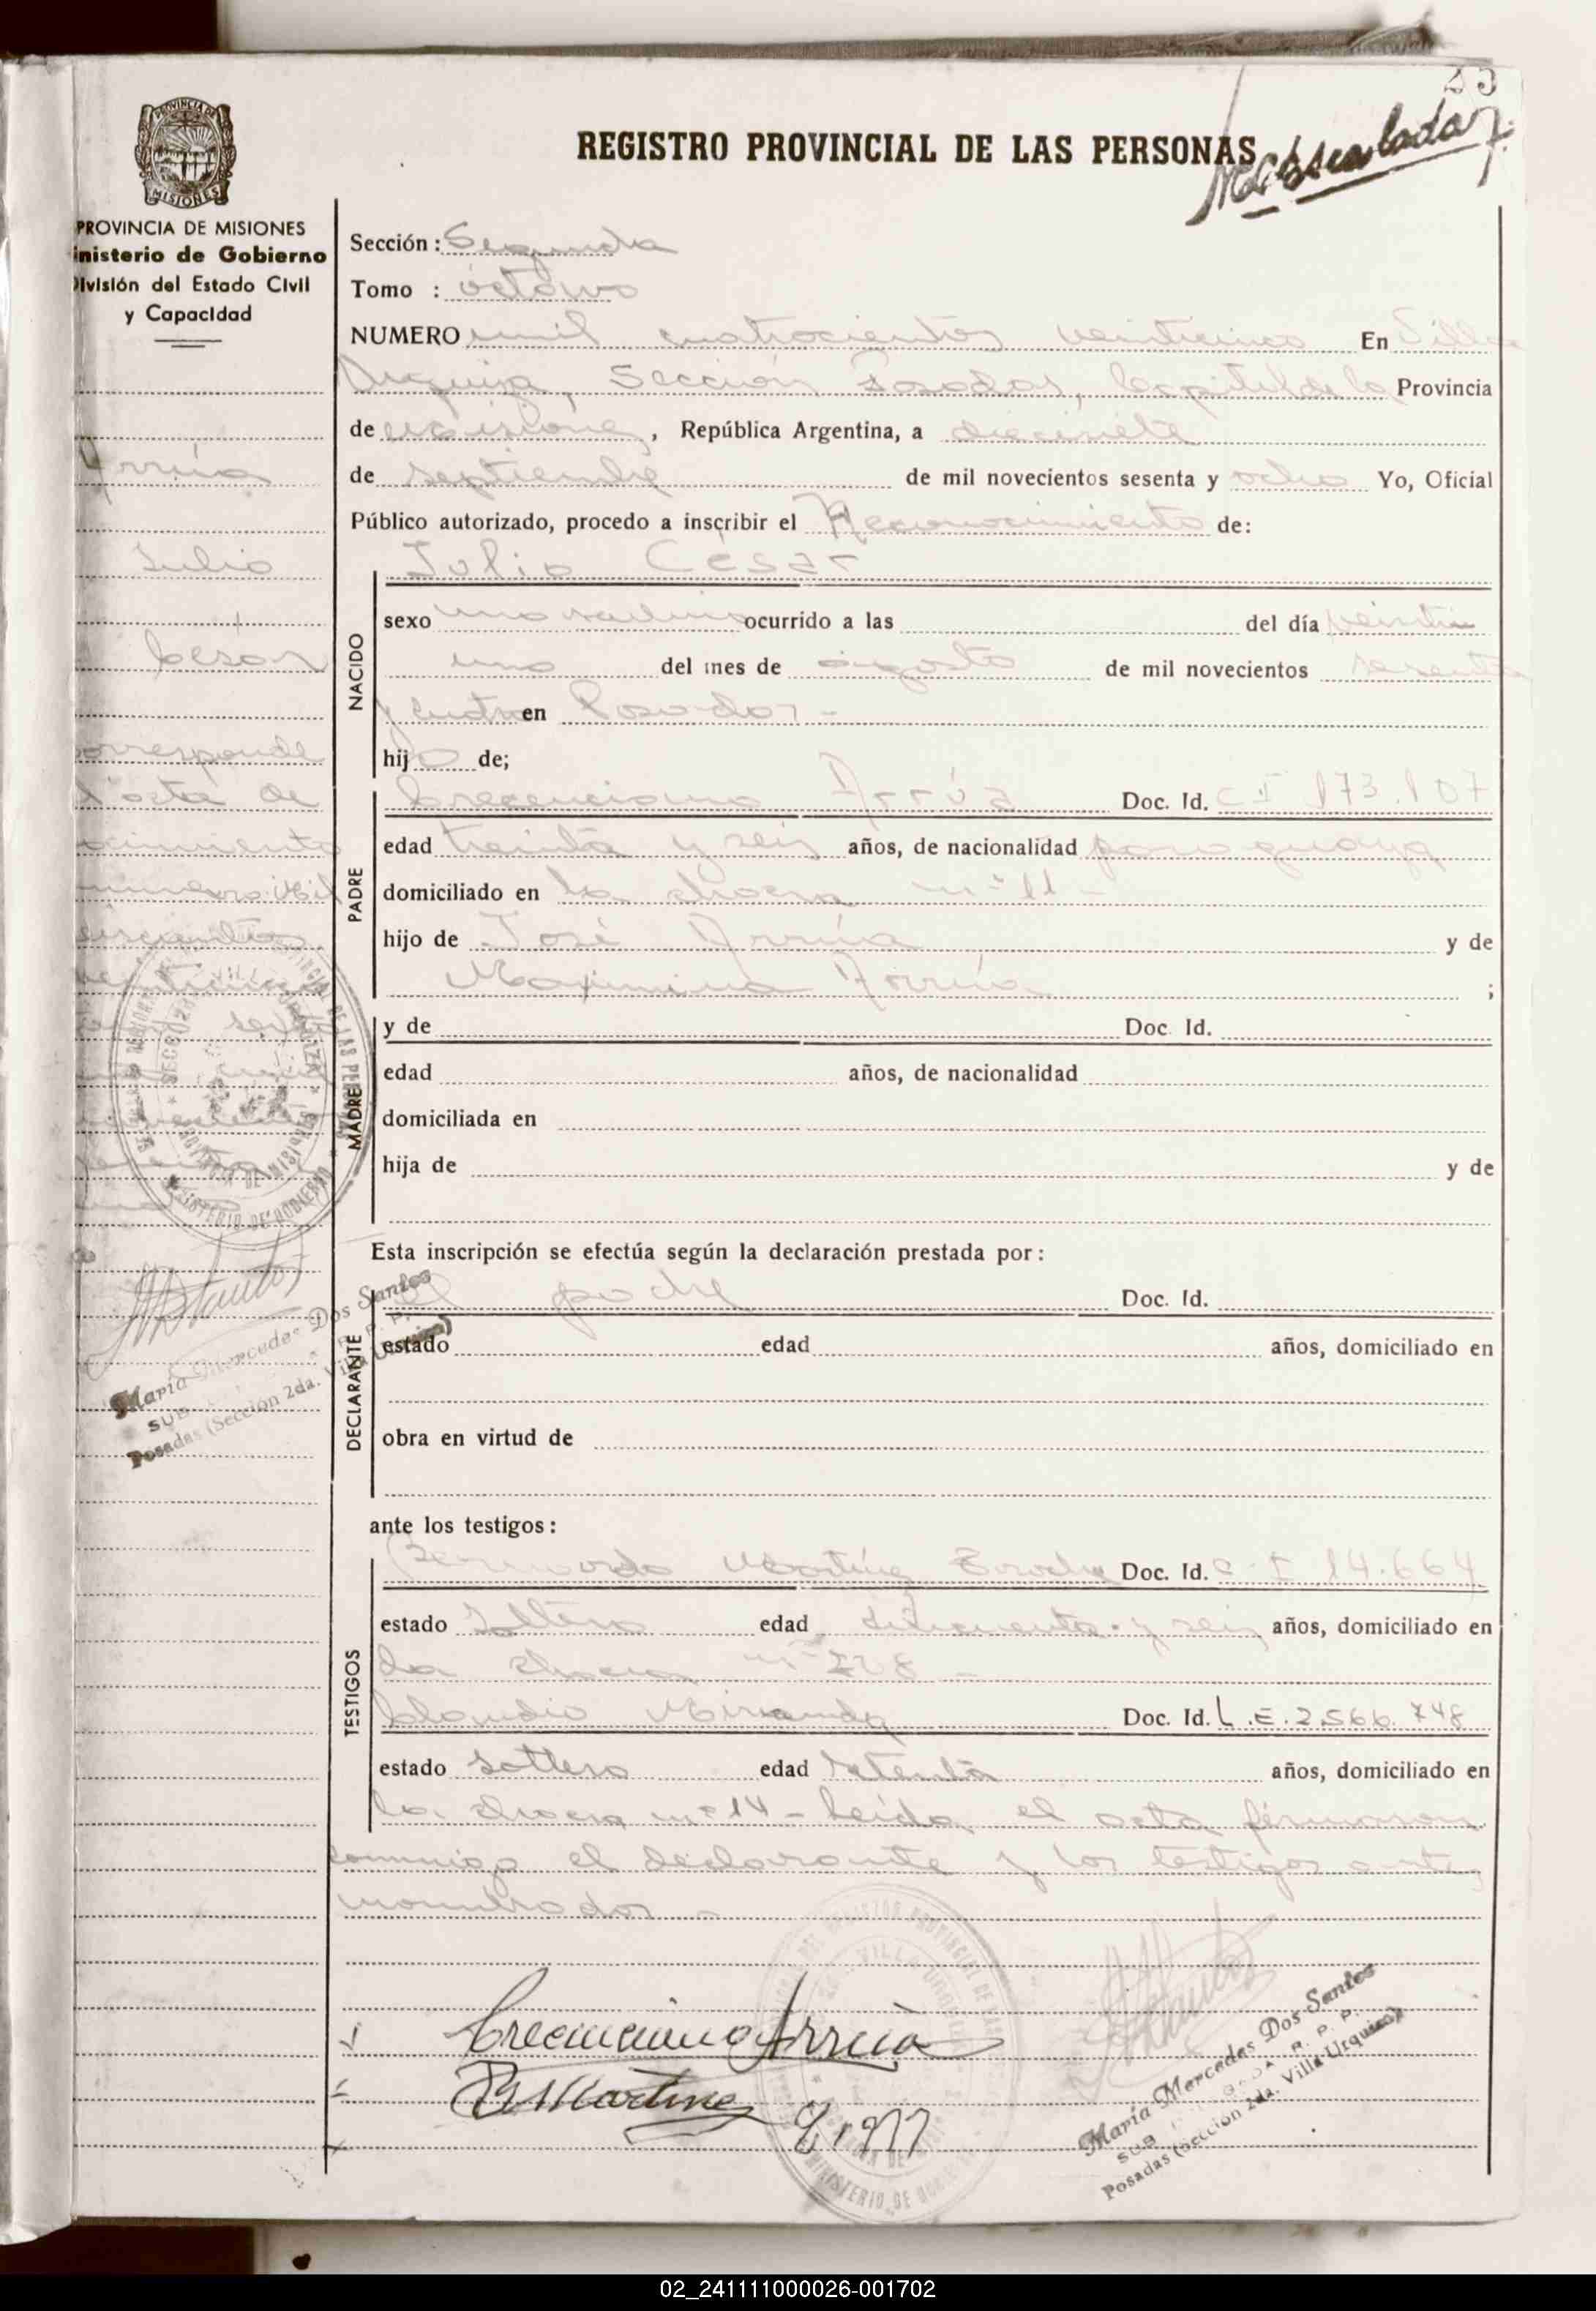 25
REGISTRO PROVINCIAL DE LAS PERSONAS
PROVINCIA DE
MISIONES
PROVINCIA DE MISIONES
inisterio de Gobierno
ivisión del Estado Civil
y Capacidad
Sección: Segunda
Tomo : octavo
NUMERO mil cuatrocientos veinticinco En Villa
Urquiza, Sección Posadas, Capital de la Provincia
de Misiones, República Argentina, a diecisiete
de septiembre de mil novecientos sesenta y ocho Yo, Oficial
Público autorizado, procedo a inscribir el Reconocimiento de:
Arrúa
Julio
César
corresponde
l'acta de
ocimiento
número mil
Julio César
NACIDO
sexo masculino ocurrido a las del día veinti
uno del mes de agosto de mil novecientos sesenta
y cuatro en Posadas -
hijo de;
PADRE
Crecenciano Arrúa Doc. Id. C I 173.107
edad treinta y seis años, de nacionalidad paraguaya
domiciliado en la chacra nº 11 -
hijo de José Arrúa y de
Maximina Arrúa ;
MADRE
y de Doc. Id.
edad años, de nacionalidad
domiciliada en
hija de y de
Esta inscripción se efectúa según la declaración prestada por:
DECLARANTE
el padre Doc. Id.
estado edad años, domiciliado en
obra en virtud de
María Mercedes Dos Santos
SUB R. P. P.
Posadas (Sección 2da. Villa Urquiza)
ante los testigos:
TESTIGOS
Bernardo Martínez Doc. Id. C. I 14.664
estado Soltero edad cincuenta y seis años, domiciliado en
la chacra nº 228 -
Claudio Miranda Doc. Id. L.E. 2.566.748
estado soltero edad setenta años, domiciliado en
la chacra nº 14 - Leída el acta firmaron
conmigo el declarante y los testigos ante
nombrados -
Crecenciano Arrúa
B Martínez
María Mercedes Dos Santos
SUB R. P. P.
Posadas (Sección 2da. Villa Urquiza)
02_241111000026-001702